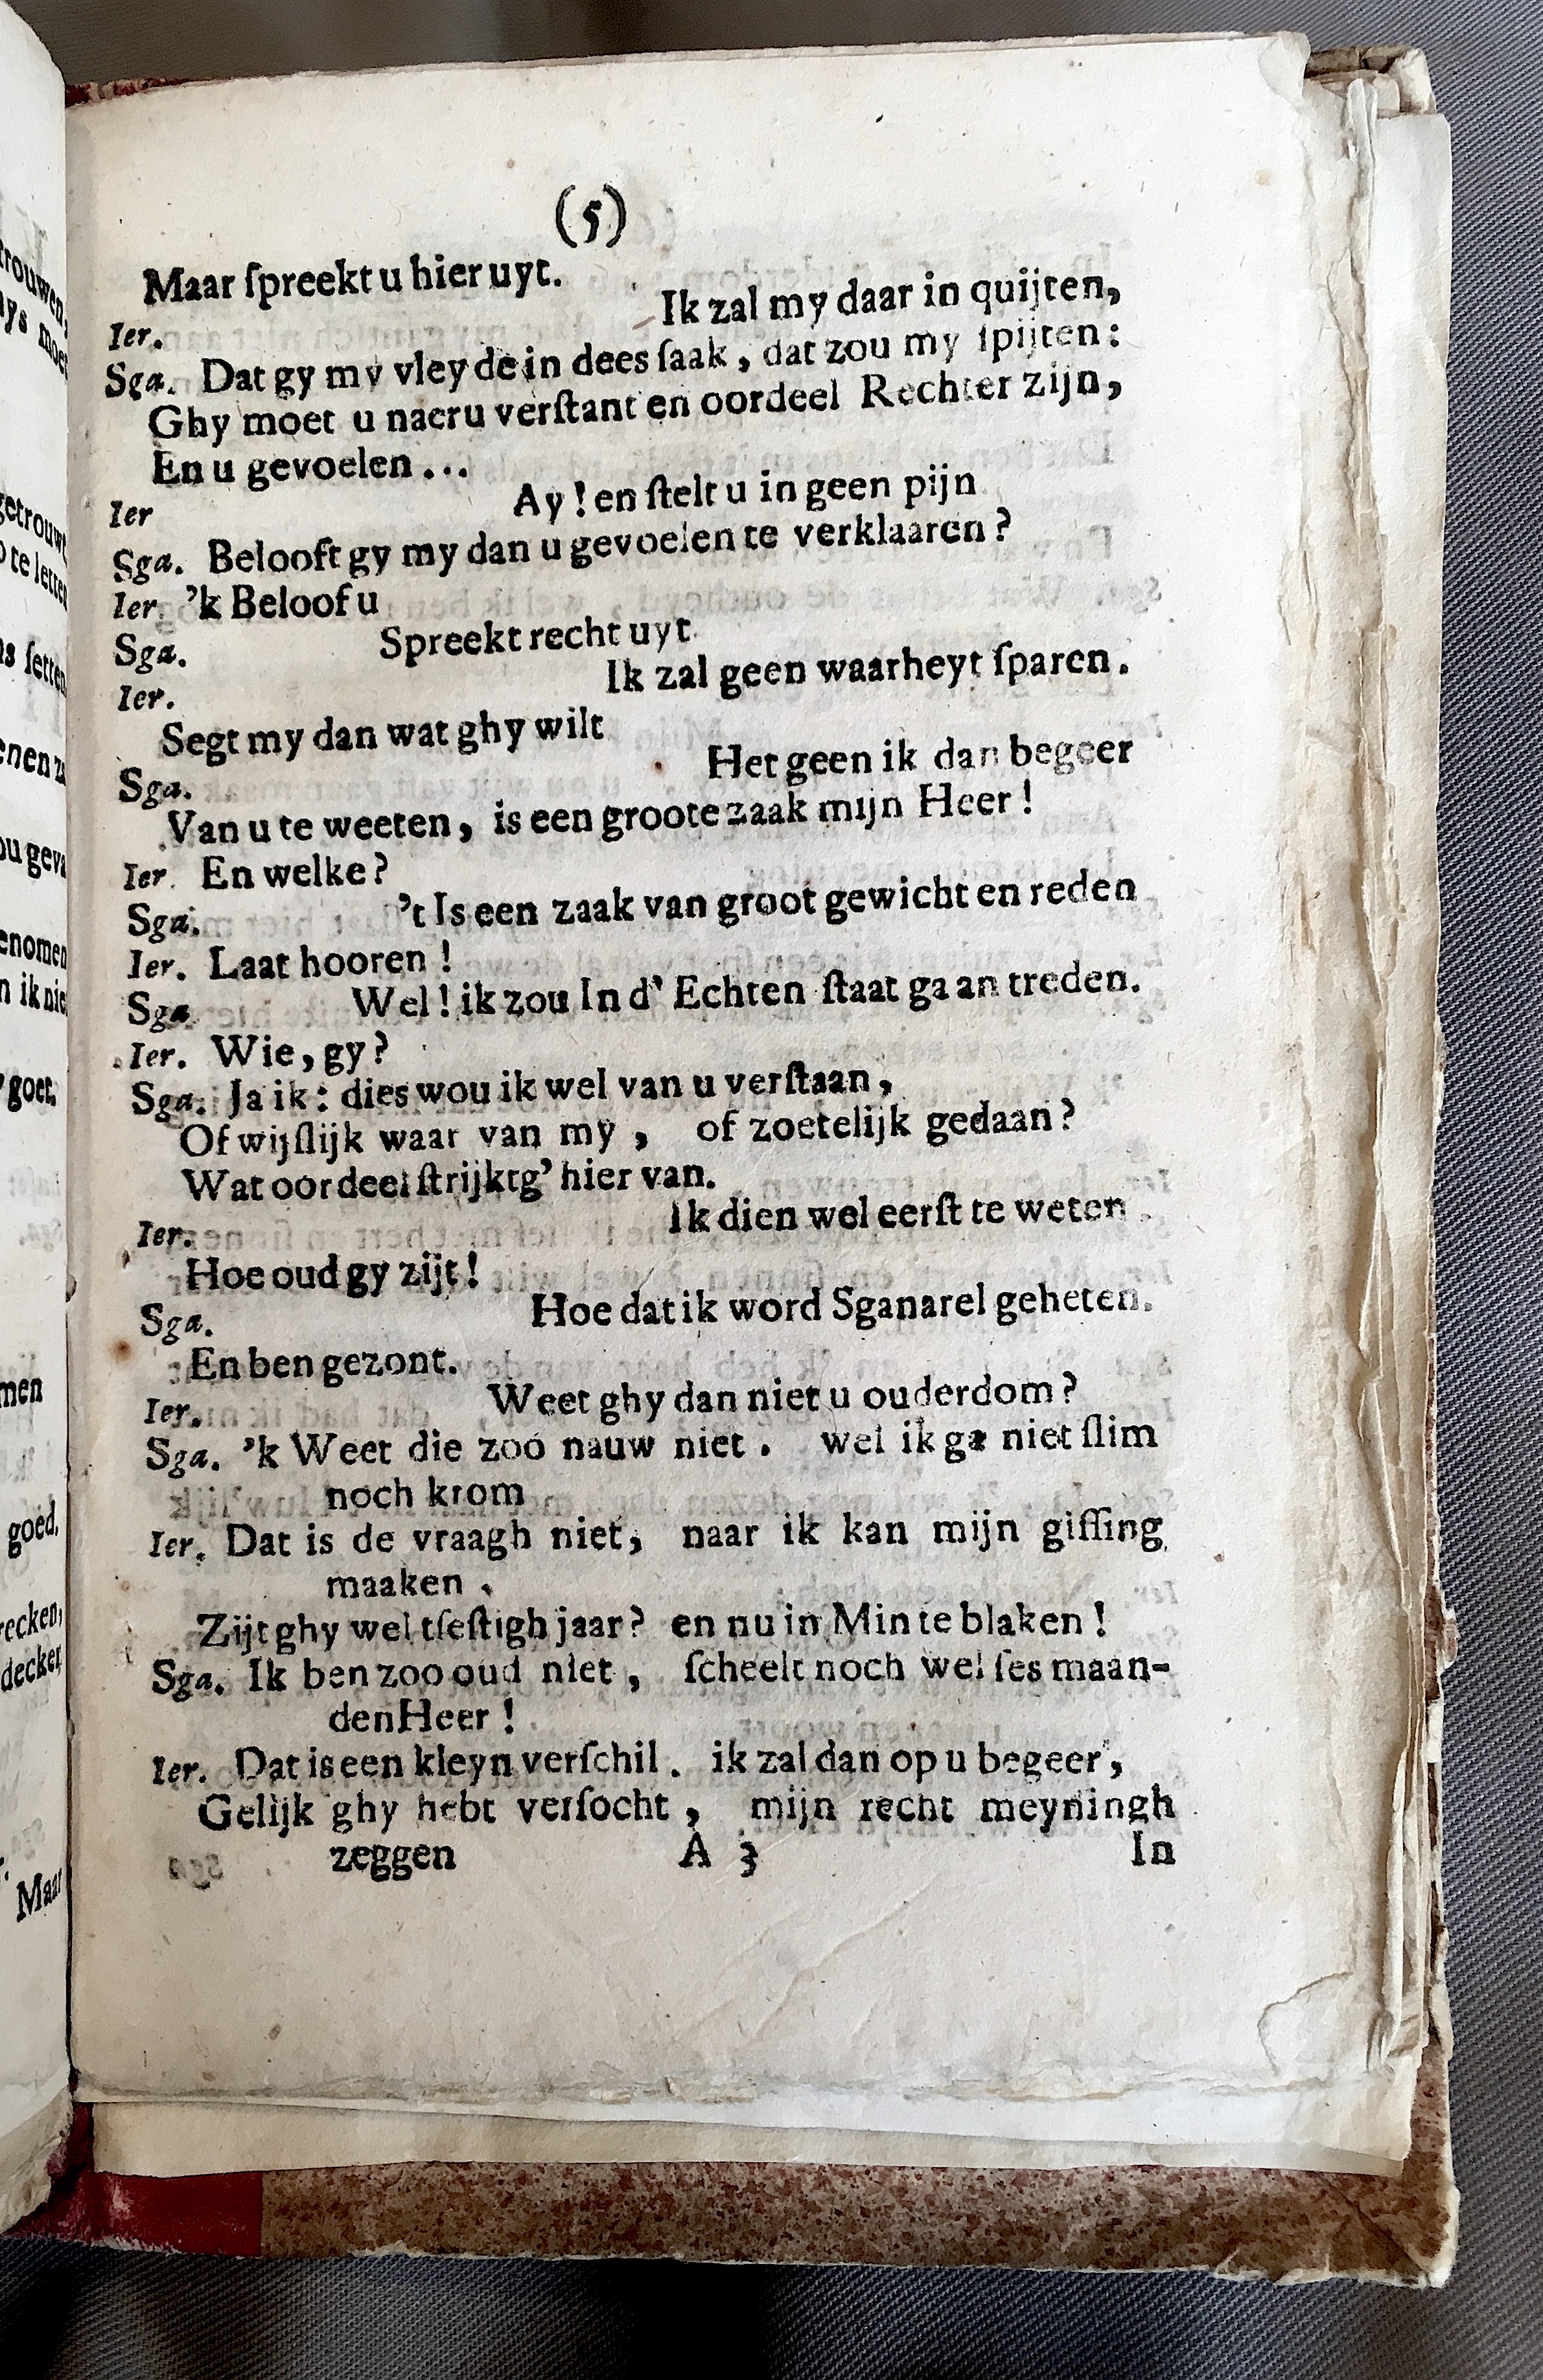 (5)
Maar ſpreekt u hier uyt.
Ier. Ik zal my daar in quijten,
Sga. Dat gy my vleyde in dees ſaak, dat zou my ſpijten:
Ghy moet u naer u verſtant en oordeel Rechter zijn,
En u gevoelen...
Ier Ay! en ſtelt u in geen pijn
Sga. Belooft gy my dan u gevoelen te verklaaren?
Ier. 'k Beloof u
Sga. Spreekt recht uyt.
Ier. Ik zal geen waarheyt ſparen.
Segt my dan wat ghy wilt
Sga. Het geen ik dan begeer
Van u te weeten, is een groote zaak mijn Heer!
Ier. En welke?
Sga. 't Is een zaak van groot gewicht en reden
Ier. Laat hooren!
Sga Wel! ik zou In d' Echten ſtaat gaan treden.
Ier. Wie, gy?
Sga. Ja ik: dies wou ik wel van u verſtaan,
Of wijſlijk waar van my, of zoetelijk gedaan?
Wat oordeel ſtrijkt g' hier van.
Ier. Ik dien wel eerſt te weten.
Hoe oud gy zijt!
Sga. Hoe dat ik word Sganarel geheten.
En ben gezont.
Ier. Weet ghy dan niet u ouderdom?
Sga. 'k Weet die zoo nauw niet. wel ik ga niet ſlim
noch krom
Ier. Dat is de vraagh niet, naar ik kan mijn giſſing
maaken.
Zijt ghy wel tſeſtigh jaar? en nu in Min te blaken!
Sga. Ik ben zoo oud niet, ſcheelt noch wel ſes maan-
den Heer!
Ier. Dat is een kleyn verſchil. ik zal dan op u begeer,
Gelijk ghy hebt verſocht, mijn recht meyningh
zeggen A 3 In